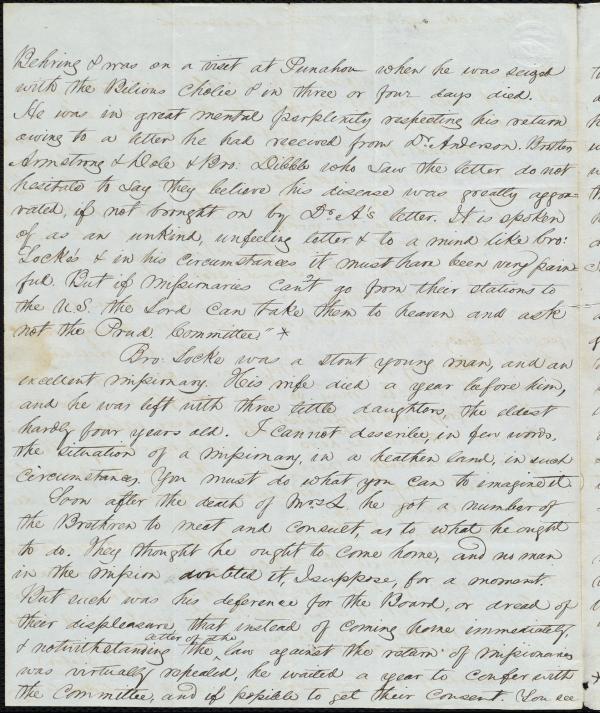 Behring & was on a visit at Punahou when he was seized
with the Bilious Cholic & in three or four days died.
He was in great mental perplexity respecting his return
owing to a letter he had received from Dr. Anderson. Brethren
Armstrong & Dole & Bro: Dibble who saw the letter do not
hesitate to say they believe his disease was greatly aggra-
vated, if not brought on by Dr. A's letter. It is spoken
of as an unkind, unfeeling letter & to a mind like bro:
Locke's & in his circumstances it must have been very pain
ful. But if missionaries can't go from their stations to
the U.S. the Lord can take them to heaven and ask
not the Prud. Committee." *
Bro. Locke was a stout young man, and an
excellent missionary. His wife died a year before him,
and he was left with three little daughters, the eldest
hardly four years old. I cannot describe, in few words,
the situation of a missionary, in a heathen land, in such
circumstances. You must do what you can to imagine it.
Soon after the death of Mrs. L. he got a number of
the Brethren to meet and consult, as to what he ought
to do. They thought he ought to come home, and no man
in the mission doubted it, I suppose, for a moment.
But such was his deference for the Board, or dread of
their displeasure, that instead of coming home immediately,
& notwithstanding the after the law against the return of missionaries
was virtually repealed, he waited a year to confer with
the Committee, and if possible to get their consent. You see